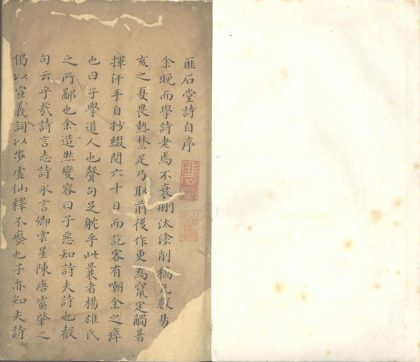 匪石堂詩自序
余晚而學詩老焉不衰刪汰塗削稿凡數易
亥之夏畏熱禁足乃取前後作更為竄定觸暑
揮汗手自抄綴閱六十日而訖客有嘲余之瘁
也曰子學道人也聲句足躭乎此曩者楊雄氏
之所鄙也余造然變容曰子惡知詩夫詩也報
句云乎哉詩言志詩永言卿雲星陳唐虞肇之
偈以宣義詞以步虛仙釋不廢也子亦知夫詩